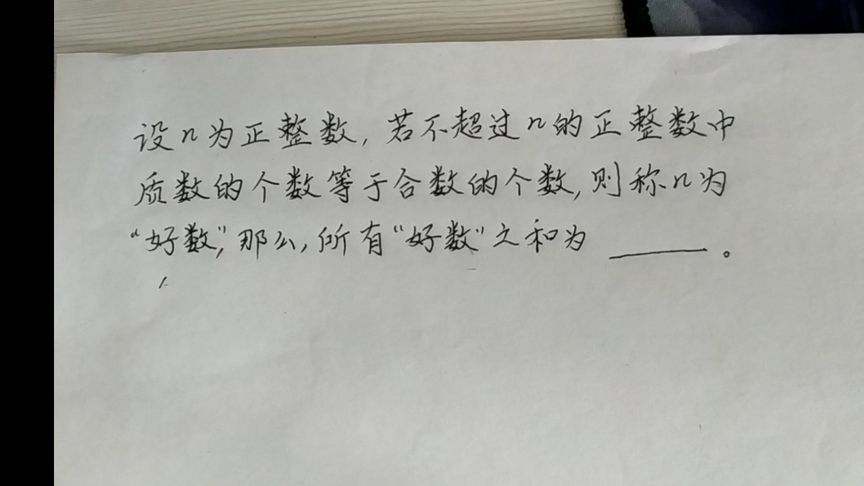 设n为正整数,若不超过n的正整数中
质数的个数等于合数的个数,则称n为
“好数”,那么,所有“好数”之和为 ______。